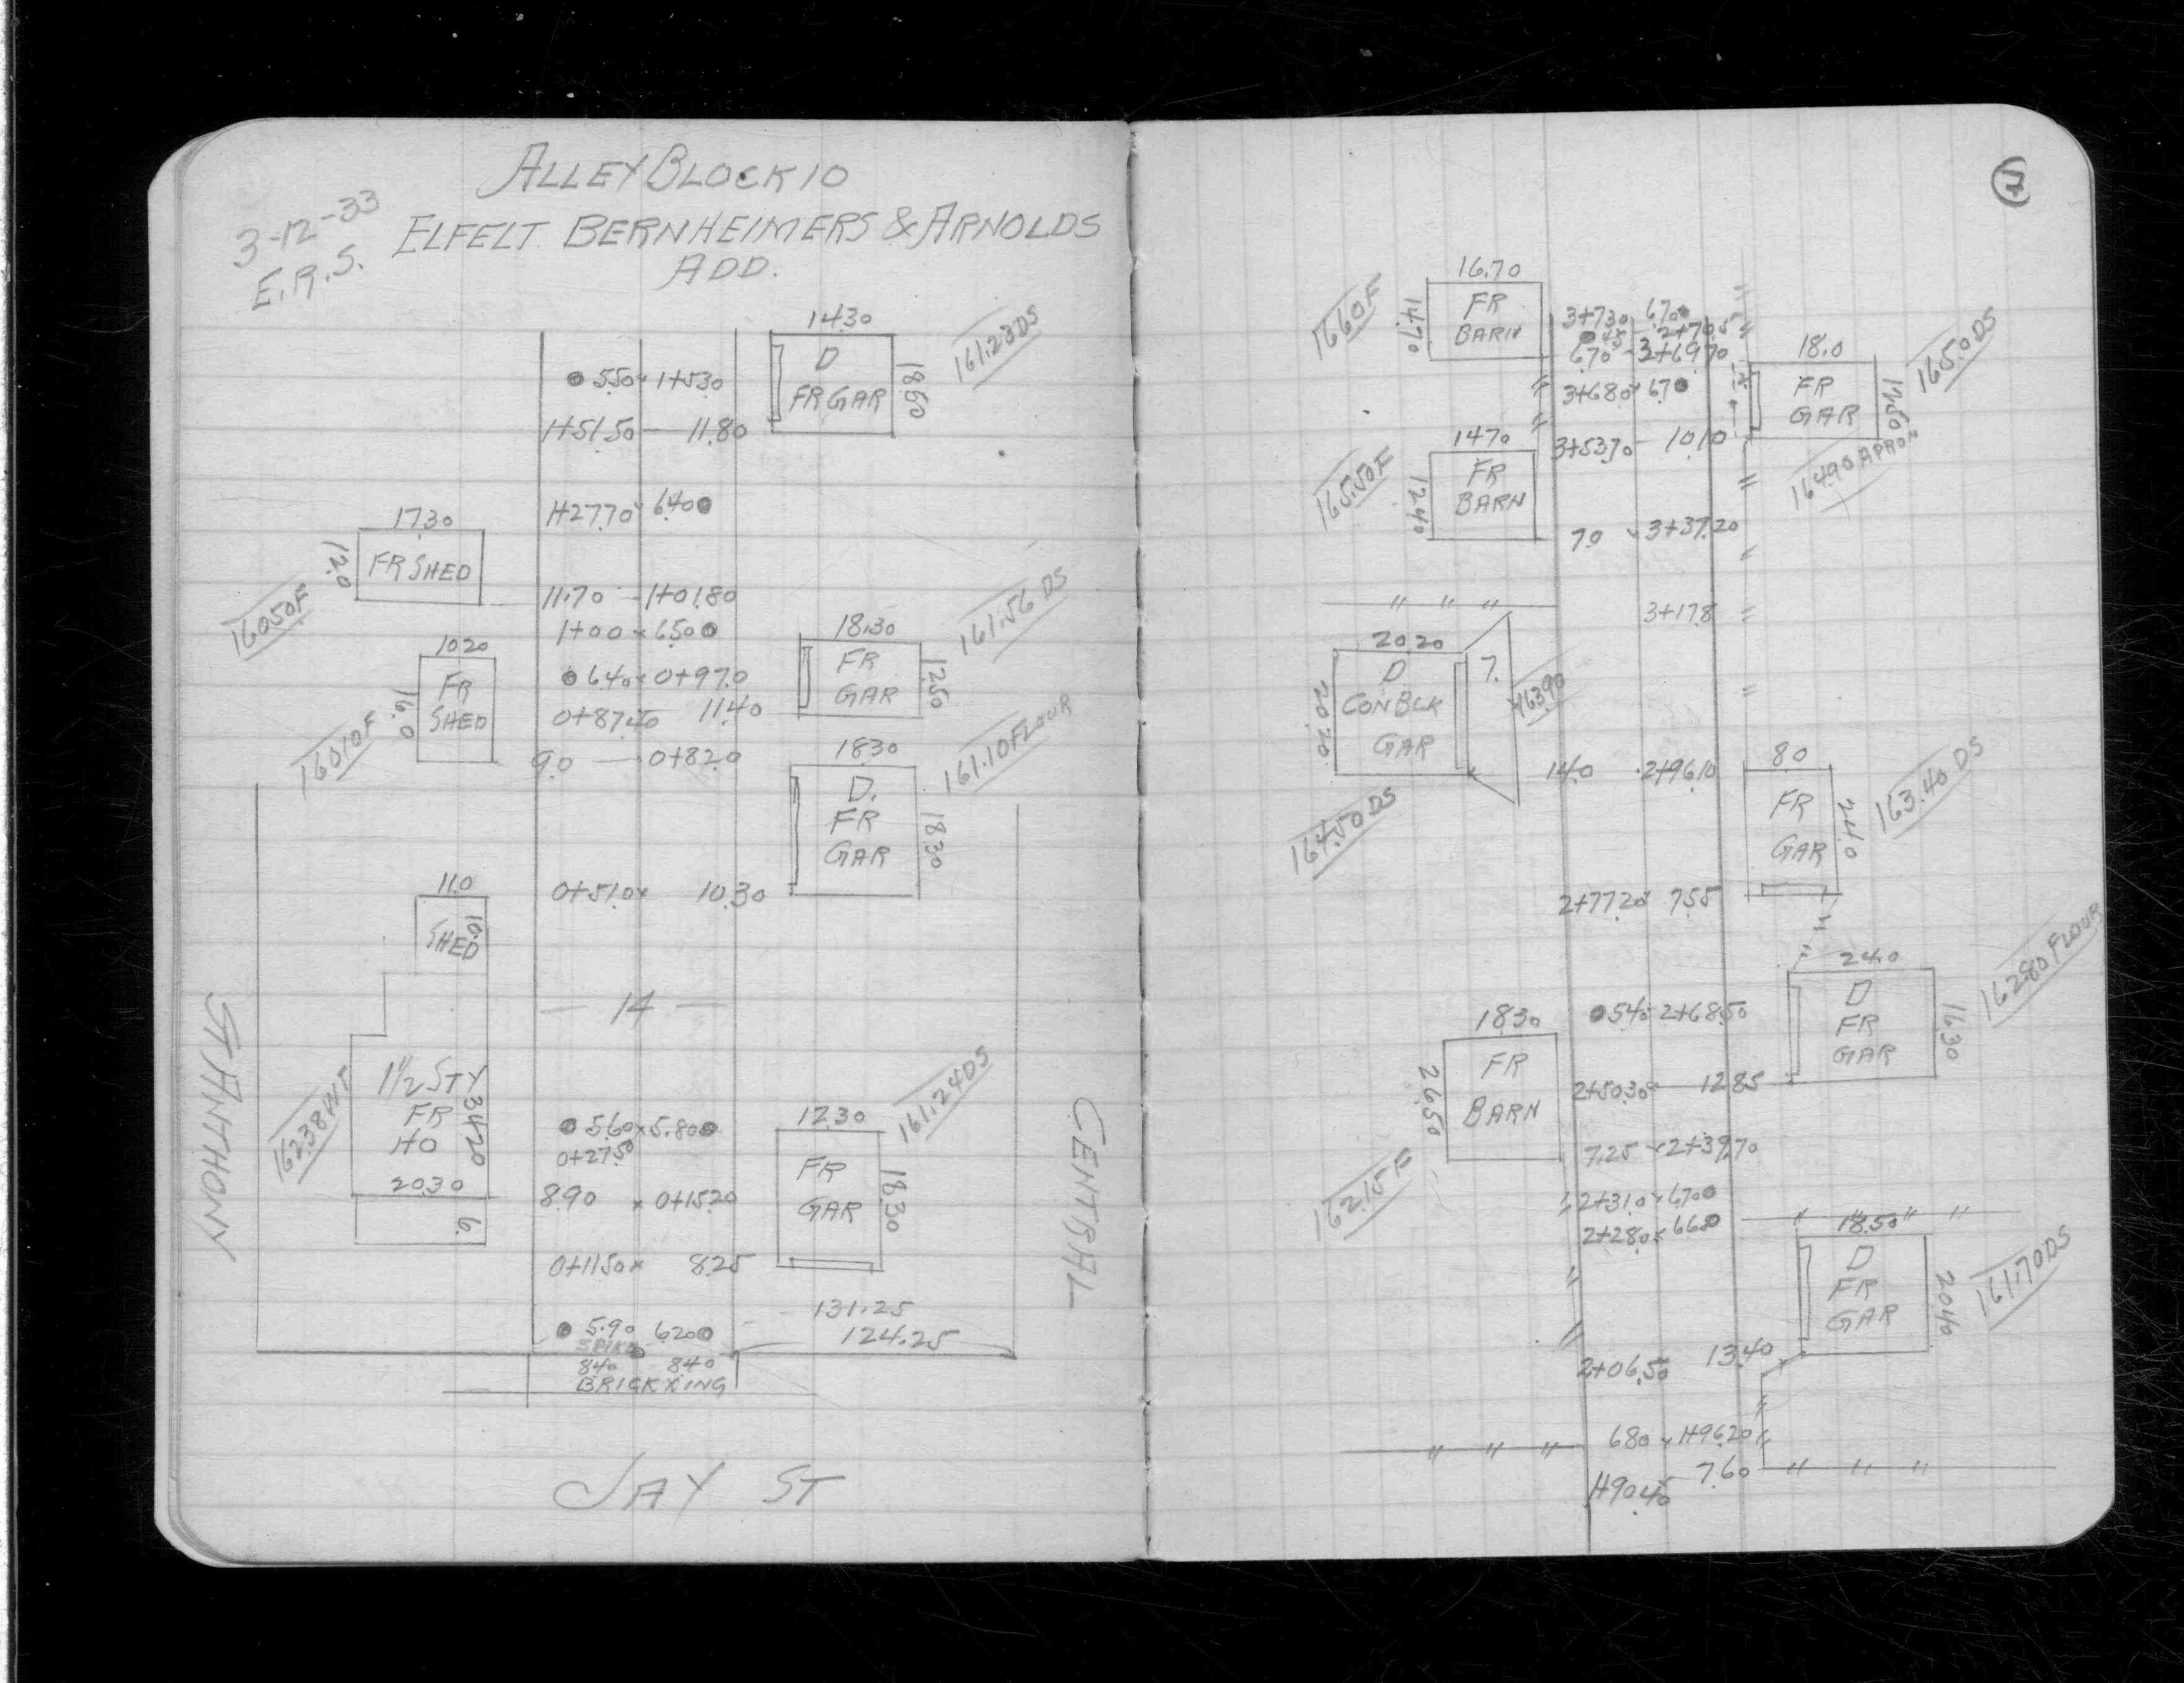 ALLEY BLOCK 10
3-12-33
ELFELT BERNHEIMERS & ARNOLDS
E.R.S.
ADD.
14.30
D
FR GAR
18.60
161.23 DS
5.50 x 1+53.0
1+51.50 — 11.80
1+27.70 x 6.40
17.30
12.0
FR SHED
160.50 F
11.70 — 1+01.80
1+00 x 6.50
18.30
FR
GAR
12.50
161.56 DS
10.20
FR
SHED
16.0
160.10 F
6.40 x 0+97.0
0+87.40 11.40
9.0 — 0+82.0
18.30
D.
FR
GAR
18.30
161.10 FLOUR
11.0
10.0
SHED
0+51.0 x 10.30
— 14 —
ST ANTHONY
1 1/2 STY
FR
HO
34.20
20.30
6.
5.60 x 5.80
0+27.50
8.90 x 0+15.20
12.30
FR
GAR
18.30
161.24 DS
CENTRAL
0+11.50 x 8.25
131.25
124.25
5.90 6.20
SPIKE
8.40 8.40
BRICK XING
JAY ST
16.70
FR
BARN
14.70
166.0 F
3+73.0 6.70
.45 - 2+70.5
6.70 - 3+69.70
3+68.0 x 6.70
18.0
FR
GAR
12.50
165.0 DS
164.90 APRON
14.70
FR
BARN
12.40
165.50 F
3+53.70 - 10.10
7.0 x 3+37.20
" " "
3+17.8
20.20
D
CON BLK
GAR
20.70
7.
163.90
164.50 DS
14.0 · 2+96.10
8.0
FR
GAR
24.0
163.40 DS
2+77.20 x 7.55
24.0
D
FR
GAR
16.30
162.80 FLOUR
5.40 - 2+68.50
18.30
FR
BARN
26.50
162.15 F
2+50.30 x — 12.85
7.25 x 2+39.70
2+31.0 x 6.70
2+28.0 x 6.60
18.50
D
FR
GAR
20.40
161.70 DS
2+06.50 13.40
6.80 x 1+96.20
" " "
7.60 " " "
1+90.40